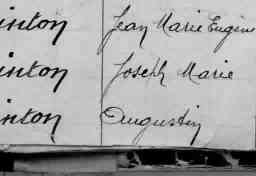 inton Jean Marie Eugène
inton Joseph Marie
inton Augustin